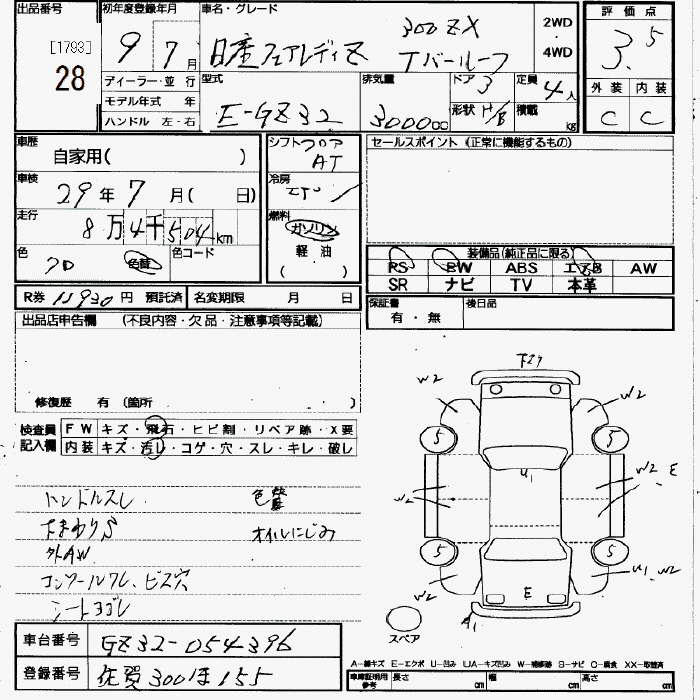 出品番号
[1793]
28
初年度登録年月
9 7月
ディーラー・並行
モデル年式 年
ハンドル 左・右
車名・グレード
日産フェアレディZ
300ZX
Tバールーフ
2WD
・
4WD
型式
E-GZ32
排気量
3000cc
ドア 3
形状 H/B
定員
4人
積載
kg
評価点
3.5
外装 内装
C C
車歴
自家用( )
車検
29年7月( 日)
走行
8万4千504km
色
色替
色コード
シフト フロア
AT
冷房
燃料
ガソリン
軽油
( )
セールスポイント (正常に機能するもの)
装備品(純正品に限る)
PS PW ABS エアB AW
SR ナビ TV 本革
R券 12930円 預託済
名変期限 月 日
保証書
有・無
後日品
出品店申告欄 (不良内容・欠品・注意事項等記載)
修復歴 有 (箇所 )
検査員
記入欄
FW キズ・飛石・ヒビ割・リペア跡・X要
内装 キズ・汚レ・コゲ・穴・スレ・キレ・破レ
ハンドルスレ
色替
下まわりS
オイルにじみ
外AW
コンソールワレ、ビス穴
シートヨゴレ
車台番号 GZ32-054396
登録番号 佐賀300ほ155
W2
W2
5
5
W2
U1
W2 E
5
5
W2
E
U1、W2
A1
スペア
A-線キズ E-エクボ U-凹み UA-キズ凹み W-補修跡 S-サビ C-腐食 XX-取替済
車庫証明用
参考
長さ cm
幅 cm
高さ cm